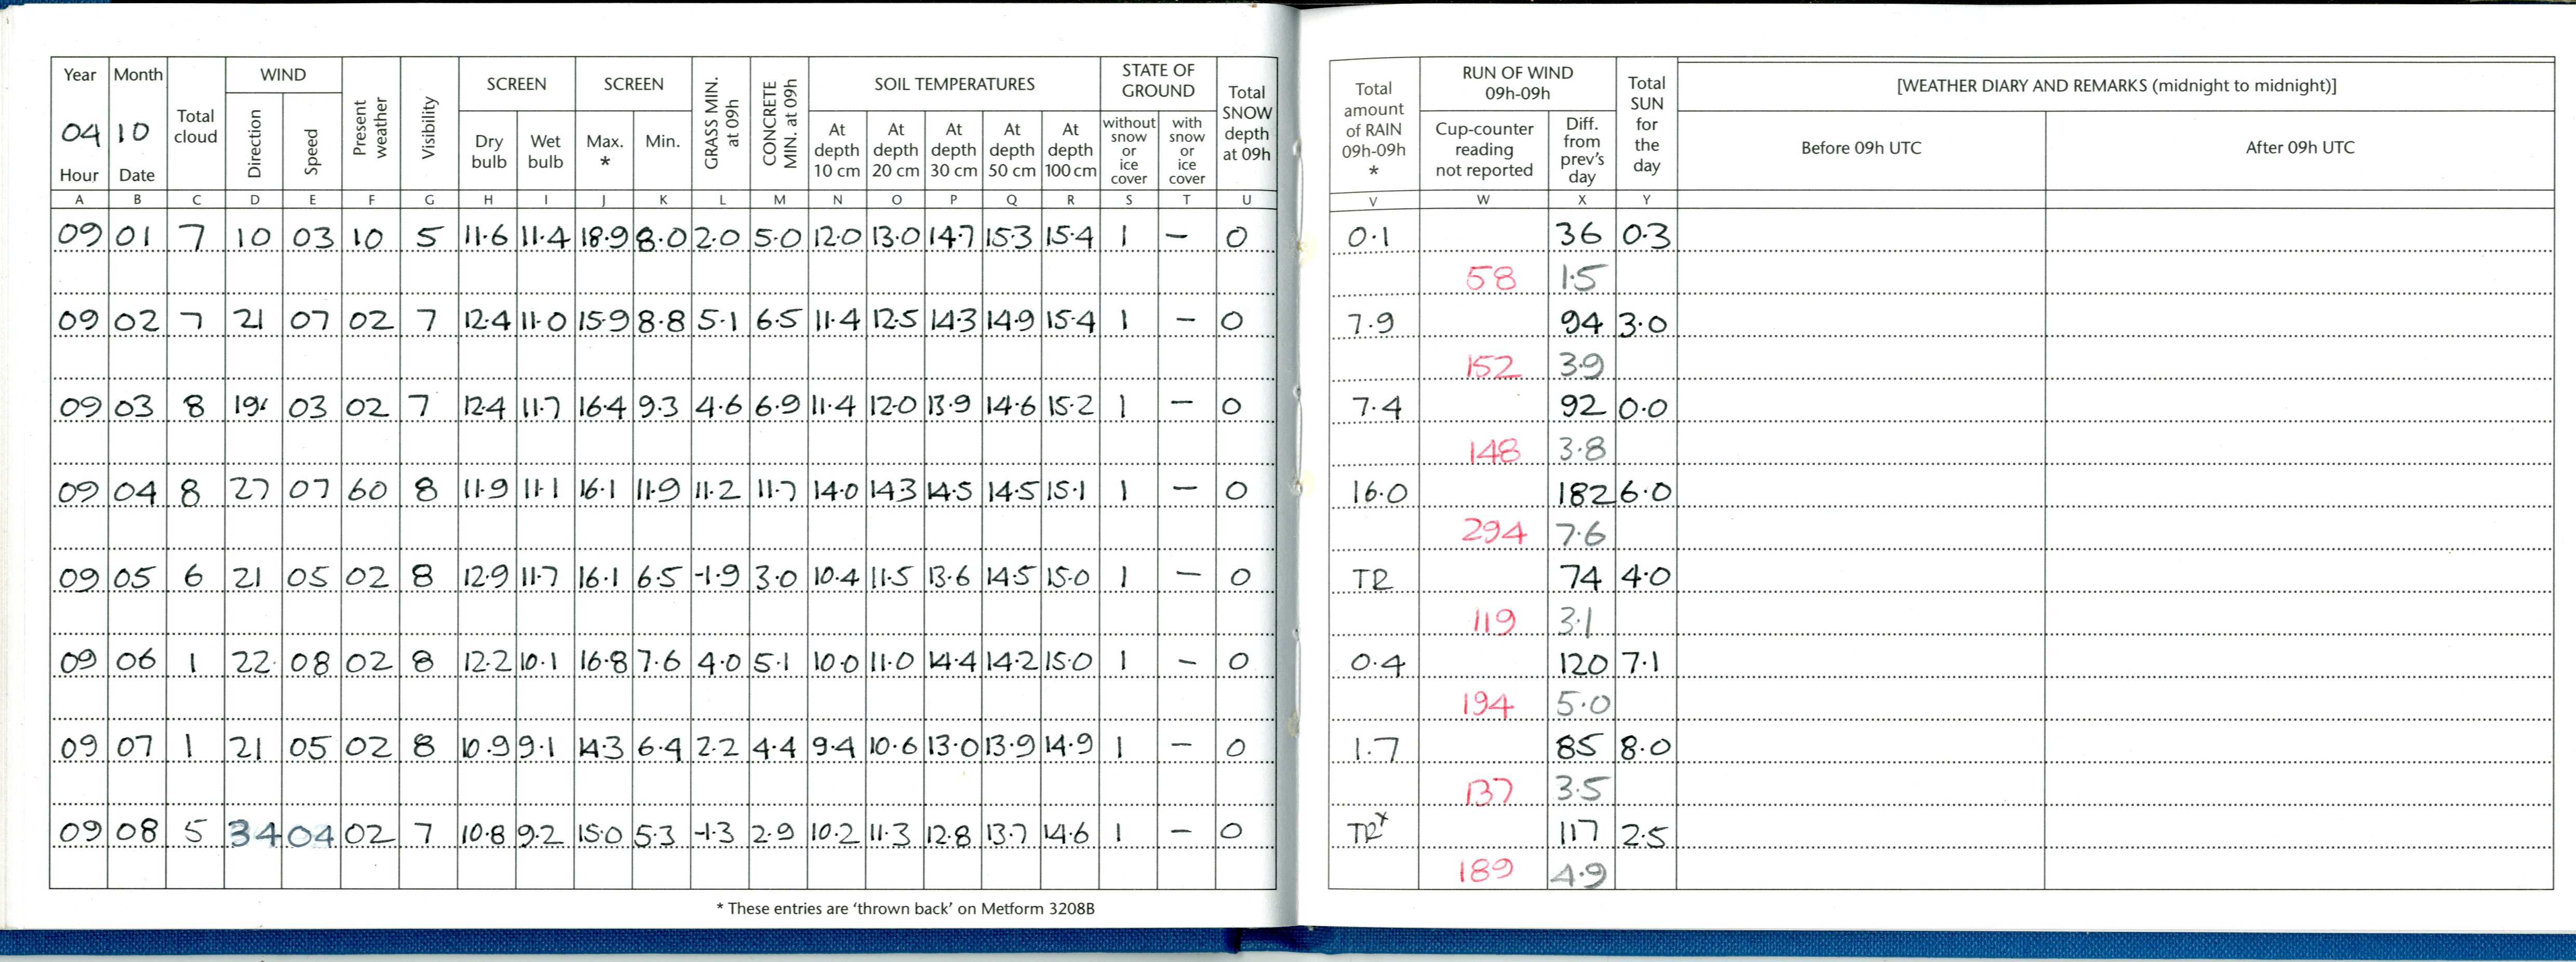 Year Month Total cloud WIND Present weather Visibility SCREEN SCREEN GRASS MIN. at 09h CONCRETE MIN. at 09h SOIL TEMPERATURES STATE OF GROUND Total SNOW depth at 09h Total amount of RAIN 09h-09h * RUN OF WIND 09h-09h Total SUN for the day [WEATHER DIARY AND REMARKS (midnight to midnight)]
04 10 Direction Speed Dry bulb Wet bulb Max. * Min. At depth 10 cm At depth 20 cm At depth 30 cm At depth 50 cm At depth 100 cm without snow or ice cover with snow or ice cover Cup-counter reading not reported Diff. from prev's day Before 09h UTC After 09h UTC
Hour Date
A B C D E F G H I J K L M N O P Q R S T U V W X Y
09 01 7 10 03 10 5 11.6 11.4 18.9 8.0 2.0 5.0 12.0 13.0 14.7 15.3 15.4 1 – 0 0.1 36 0.3
58 1.5
09 02 7 21 07 02 7 12.4 11.0 15.9 8.8 5.1 6.5 11.4 12.5 14.3 14.9 15.4 1 – 0 7.9 94 3.0
152 3.9
09 03 8 19 03 02 7 12.4 11.7 16.4 9.3 4.6 6.9 11.4 12.0 13.9 14.6 15.2 1 – 0 7.4 92 0.0
148 3.8
09 04 8 27 07 60 8 11.9 11.1 16.1 11.9 11.2 11.7 14.0 14.3 14.5 14.5 15.1 1 – 0 16.0 182 6.0
294 7.6
09 05 6 21 05 02 8 12.9 11.7 16.1 6.5 -1.9 3.0 10.4 11.5 13.6 14.5 15.0 1 – 0 TR 74 4.0
119 3.1
09 06 1 22 08 02 8 12.2 10.1 16.8 7.6 4.0 5.1 10.0 11.0 14.4 14.2 15.0 1 – 0 0.4 120 7.1
194 5.0
09 07 1 21 05 02 8 10.9 9.1 14.3 6.4 2.2 4.4 9.4 10.6 13.0 13.9 14.9 1 – 0 1.7 85 8.0
137 3.5
09 08 5 34 04 02 7 10.8 9.2 15.0 5.3 -1.3 2.9 10.2 11.3 12.8 13.7 14.6 1 – 0 TR x 117 2.5
189 4.9
* These entries are 'thrown back' on Metform 3208B